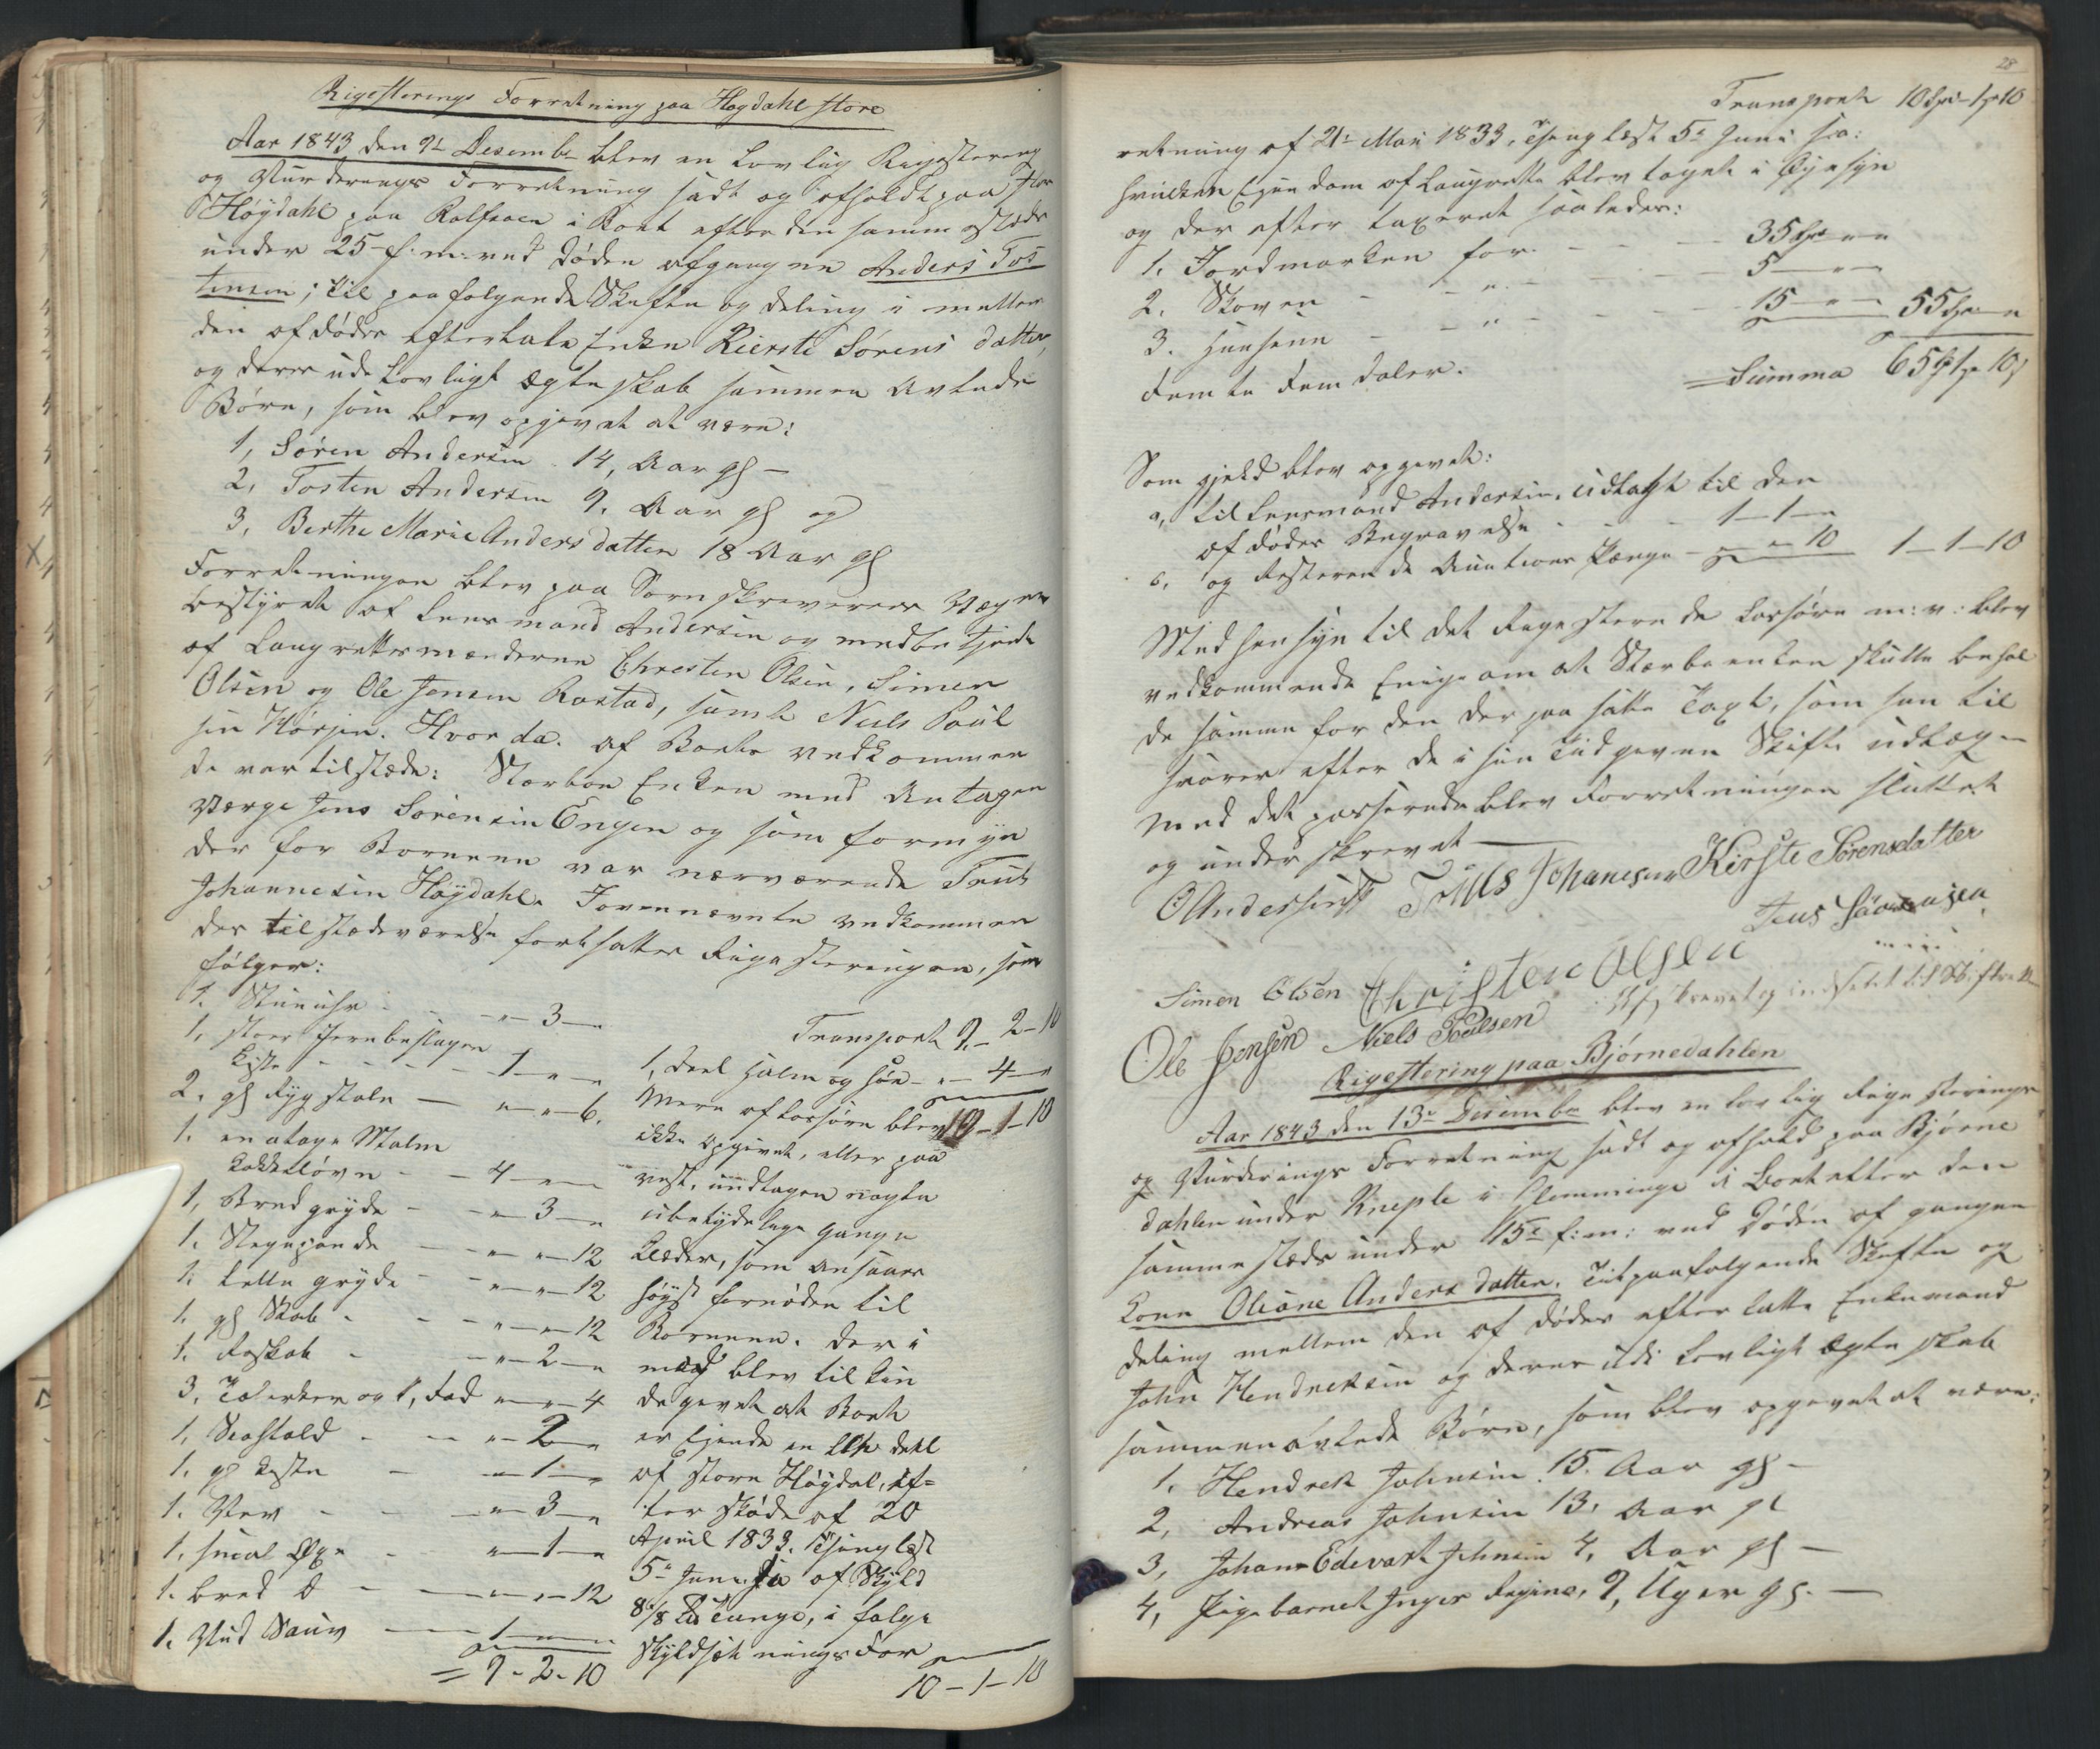 Rigesterings Forretning paa Høgdahl store
Aar 1843 den 9de Desembr blev en Lovlig Rigestering
og Vurderings Forretning sadt og afholdt paa stor
Høÿdahl paa Rolfsøen i Boet efter den samme steds
under 25 f: m: ved Døden afgangne Anders Tos
tensen; til paafølgende Skifte og deling i mellem
den afdødes efterlate Enke Kierste Sørens datter,
og deres ude Lovligt Ægteskab sammen Avlede
Børn, som blev opgivet at være:
1, Søren Andersen 14, Aar gl –
2, Tosten Andersen 9. Aar gl og
3, Berthe Marie Andersdatter 18 Aar gl
Forretningen blev paa Sorenskreverens Vegne
bestyret af Lensmand Andersen og medbetjent
af Laugrettesmænderne Chresten Olsen, Simen
Olsen og Ole Jensen Rostad, samt Niels Poul
sen Hørsen. Hvor da af Boets vedkommen
de var tilstæde: Stærboe Enken med Antagen
Værge Jens Sørensen Engen og som formÿn
der for Børnene var nærværende Truls
Johannesen Høÿdahl. I ovennævnte vedkommen
des tilstædeværelse fortsattes Rigesteringen, som
følger:
1. Stueuhr - - „ – 3 – „
1, stoer Jernbeslagen
Kiste - - - - 1 – „ – „
2, gl Rÿgstole — „ – „ – 6.
1. en etage Malm
Kakkelovn - - 4 – „ – „
1, Bred grÿde - - „ – 3 – „
1. Stegepande - „ – „ – 12
1. lille grÿde - - „ – „ – 12
1. gl Skab - - - „ – „ – 12
1. Roskab - - „ – 2 – „
3, Talerken og 1, Fad „ – „ – 4
1, Seastald - - „ – 2 – „
1. gl Kiste - „ – 1 – „
1. Vev - - - „ – 3 – „
1, smal Øxe - „ – 1 – „
1. bred D - - „ – „ – 12
1. Hud Sauv - - 1 – „ – „
= 9 - 2 - 10
Transport 9 – 2 – 10
1, deel Halm og Høe - „ – 4 – „
10 – 1 – 10
Mere af Løssøre blev
ikke opgivet, eller paa
vist, undtagen nogle
ubetÿdelige gange
Klæder, som ansaaes
høÿst fornøden til
Børnene. Der i
mod blev tilkien
degivet at Boet
er Ejende en Llh deel
af store Høÿdal, ef=
ter skøde af 20
April 1833. Tinglæst
5te Juni s a af Skÿld
8 1/8 Lb Tunge, i følge
Skÿldsætnings For
10 – 1 – 10
28
Transport 10 Spd – 1 – 10
retning af 21de Mai 1833, Tinglæst 5te Juni s a:
hvilken Ejendom af Laugrette blev taget i Øÿesÿn
og der efter taxeret saaledes:
1. Jordmarken for - - - 35 Spd „ „
2. Skoven - - „ - - - 5 – „ – „
3. Husene - - „ - - - 15 – „ – „ 55 Spd „ „
femti fem daler.
= Summa 65 Sp 1 10 s
Som gjeld blev opgivet:
a, til Lensmand Andersen, udlagt til den
afdødes Begravelse - - - 1 – 1 – „
b, og Resterende Auctions Penge - „ – „ – 10 1 – 1 – 10
Med hensÿn til det Rigesterende Løssøre m: v: blev
vedkommende Enige om at Stærboenken skulle behol
de samme for den der paa satte Taxt, som hun til
svarer efter de i sin Tid given Skifte udlæg –
Med det passerede blev Forretningen sluttet
og underskrevet —
O Andersen Trúls Johanesen Kirste Sørensdatter
Jens Sørensen
Simen Olsen Christen Olsen
Ole Jensen Niels Poulsen
Afskrevet og indsendt til Skifteretten
Rigestering paa Bjørnedahlen
Aar 1843 den 13de Desembr blev en lovlig Rigesterings
og Vurderings Forretning sadt og afhold paa Bjørne
dahlen under Kneple i Glemminge i Boet efter den
sammesteds under 15de f: m: ved Døden afgangne
Kone Oliane Anders datter, til paafølgende Skifte og
deling mellem den afdødes efterlatte Enkemand
John Hendreksen og deres udi Lovligt Ægteskab
sammenavlede Børn, som blev opgivet at være:
1. Hendrek Johnsen 15. Aar gl –
2, Andreas Johnsen 13, Aar gl
3, Johan Edevart Johnsen 4, Aar gl –
4, Pigebarnet Inger Regine, 9, Uger gl. —